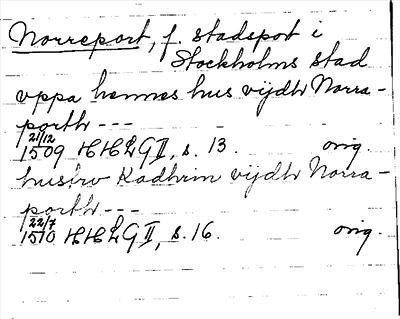 Norreport, f. stadsport i
Stockholms stad
vppa hennes hus vijdh Norra-
porth ---
21/12
1509 HHLG II, s. 13. orig.
hustrv Kadhrin vijdh Norra-
porth ---
22/7
1510 HHLG II, s. 16. orig.